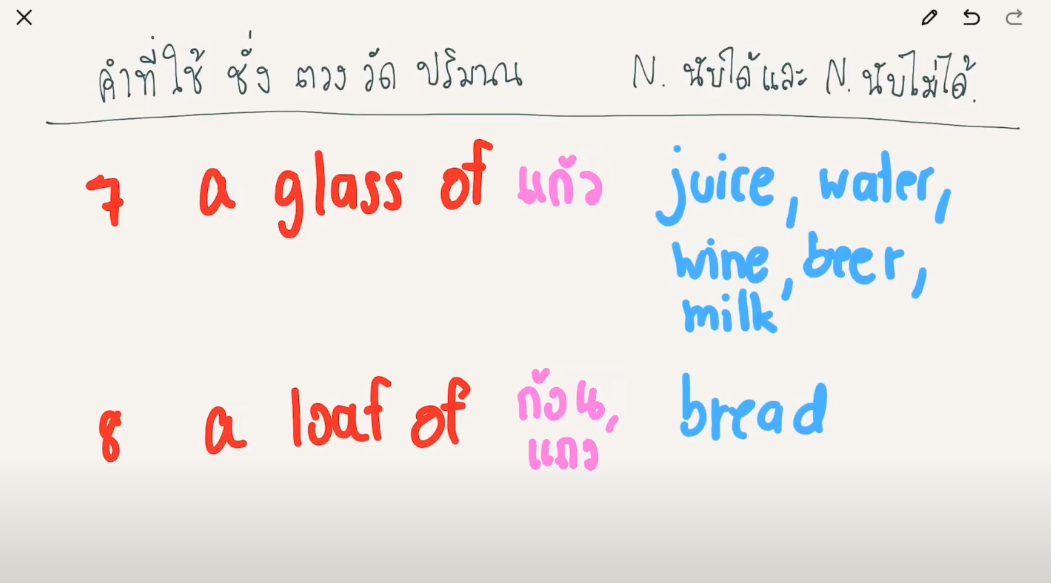 คำที่ใช้ ชั่ง ตวง วัด ปริมาณ N. นับได้ และ N. นับไม่ได้.
7 a glass of แก้ว juice, water,
wine, beer,
milk
8 a loaf of ก้อน, bread
แถว